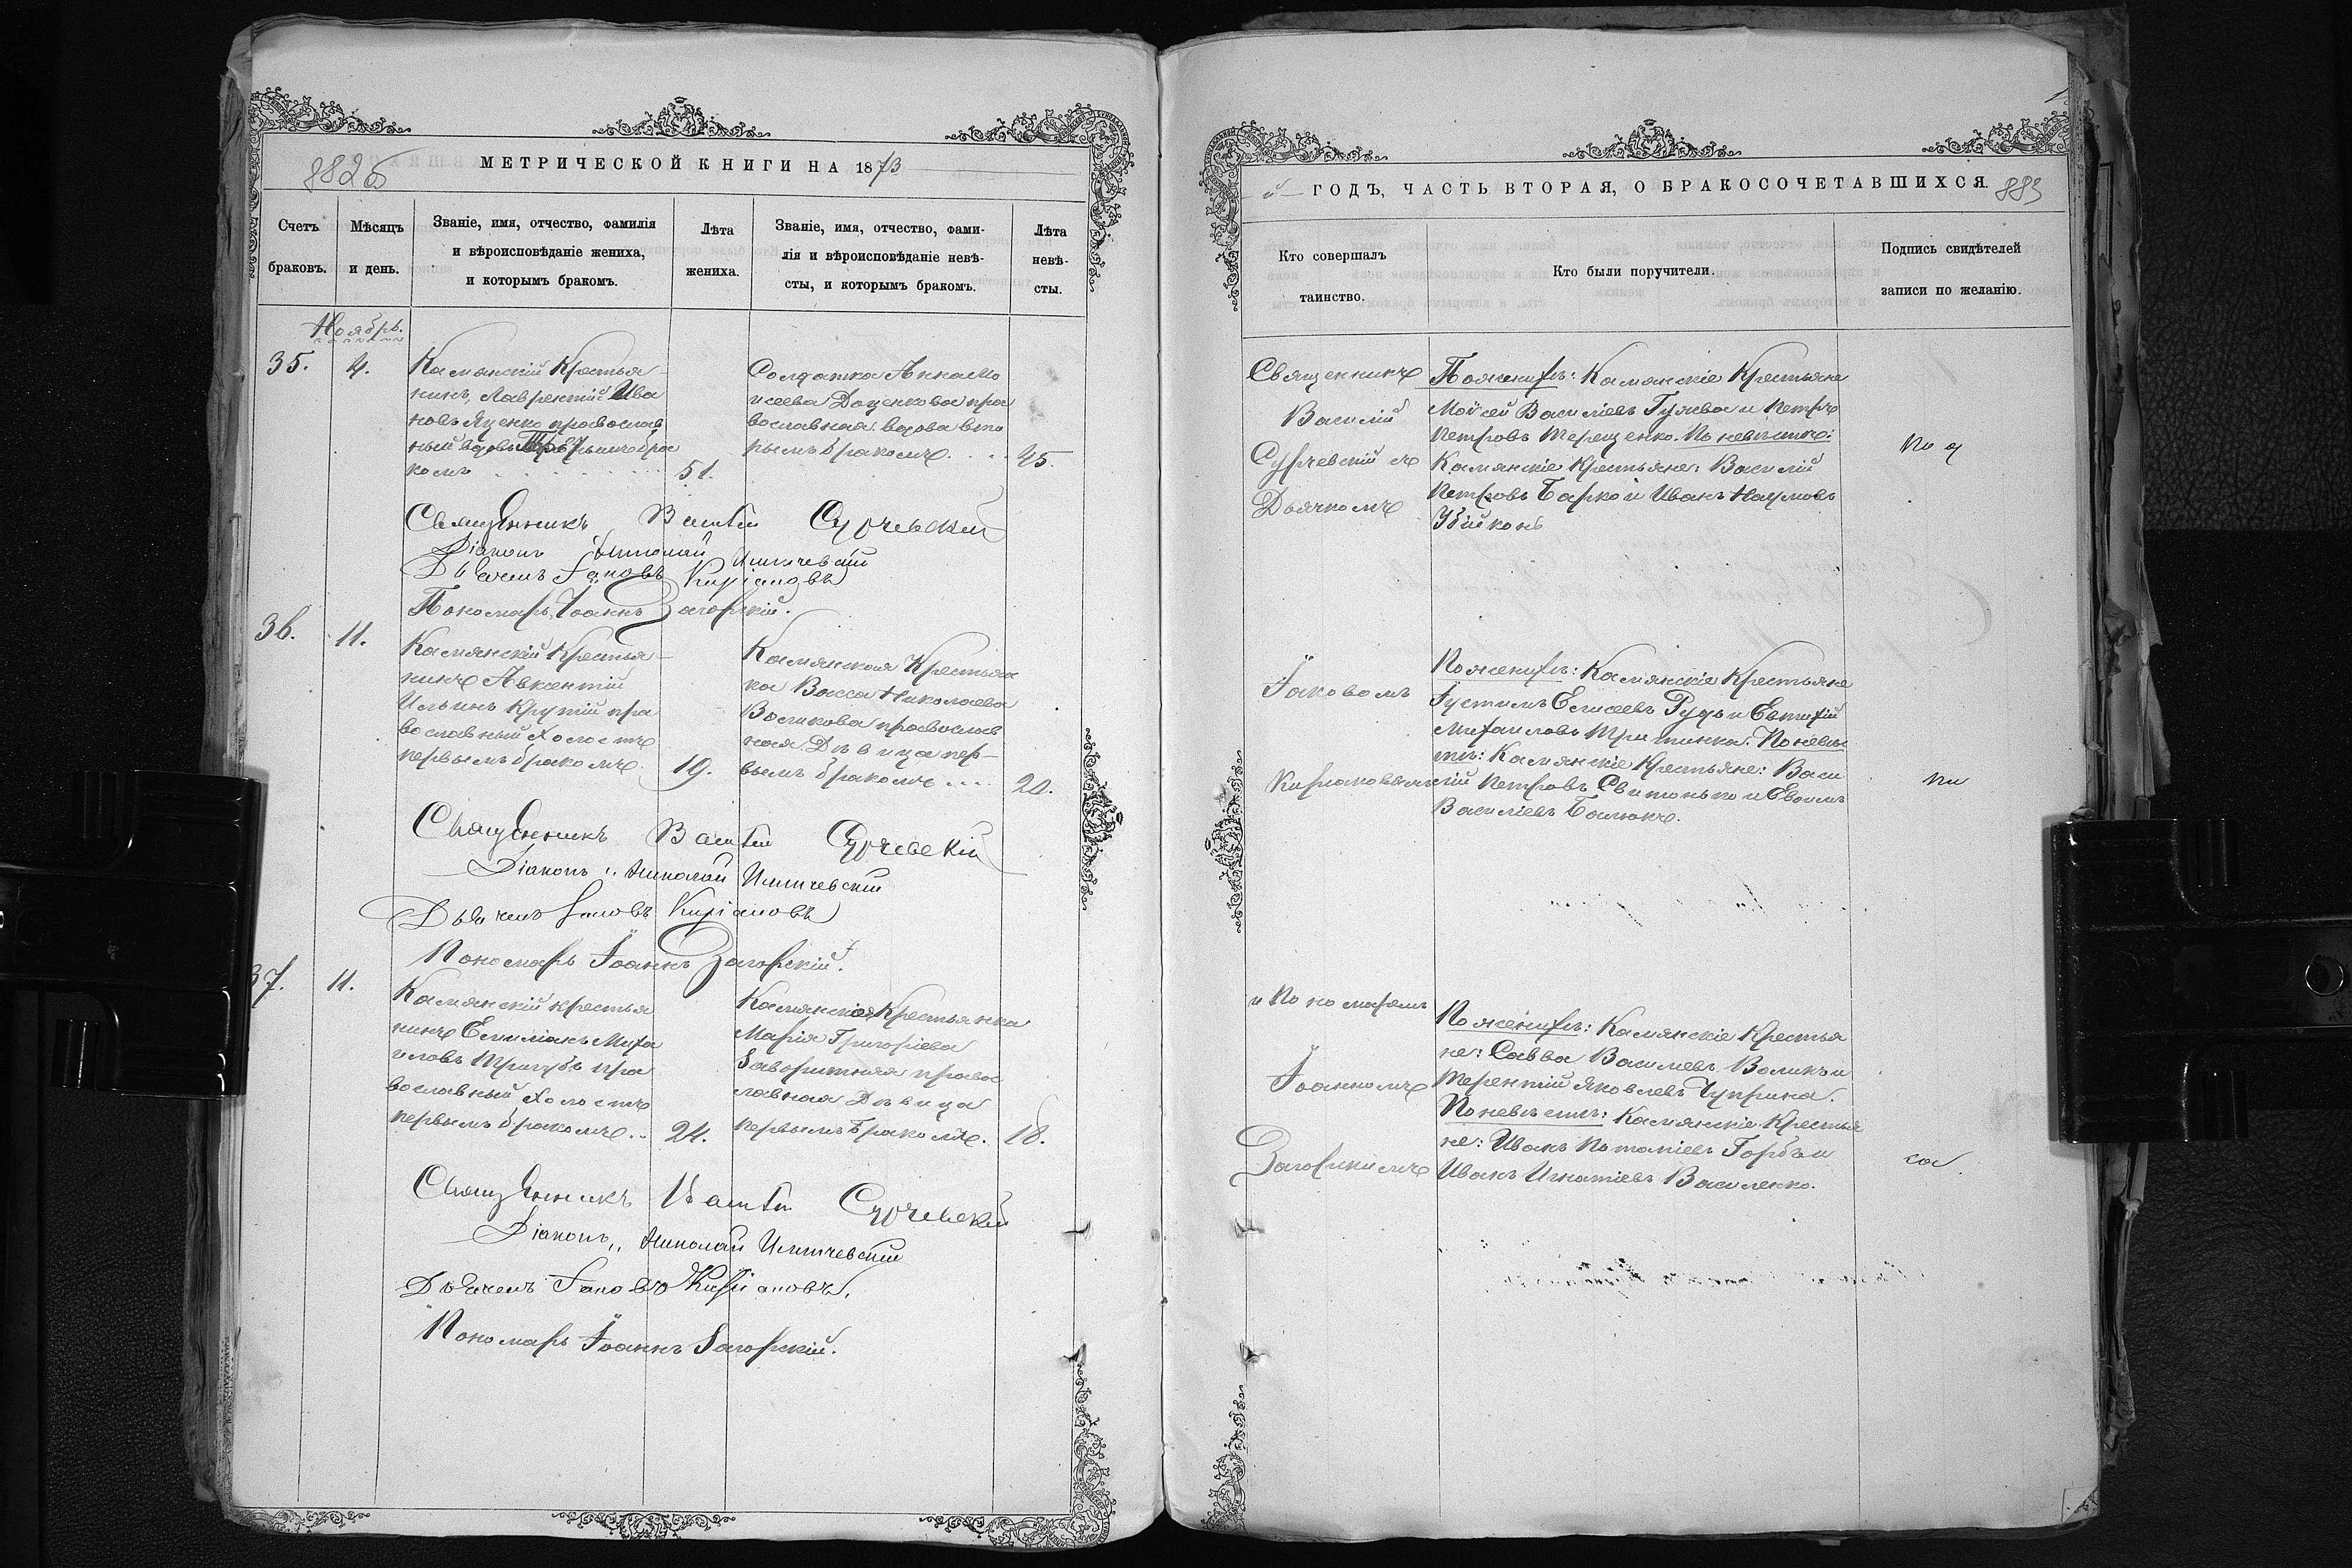 882б
МЕТРИЧЕСКОЙ КНИГИ НА 1873
Счетъ браковъ.
Мѣсяцъ и день.
Званіе, имя, отчество, фамилія
и вѣроисповѣданіе жениха,
и которымъ бракомъ.
Лѣта
жениха.
Званіе, имя, отчество, фами-
лія и вѣроисповѣданіе невѣ-
сты, и которымъ бракомъ.
Лѣта
невѣ-
сты.
Ноябрь.
35.
4.
Камянскій Крестья-
нинъ, Лаврентій Ива
новъ Яценко православ
ный вдовъ бра
комъ
51.
Солдатка Анна Мо
исеева Доценкова пра
вославная вдова вто
рымъ бракомъ....
45.
Священникъ Василій Сурчевскій
Діаконъ Николай Имшчевскій
Дьячекъ Іаковъ Киріаковъ
Пономарь Іоаннъ Загорскій.
36.
11.
Камянскій Крестья-
нинъ Авксентій
Ильинъ Крутій пра
вославный холостъ
первымъ бракомъ.
19.
Камянская Крестьян
ка Васса Николаева
Воликова православ
ная Дѣвица пер-
вымъ бракомъ....
20.
Священникъ Василій Сурчевскій
Діаконъ Николай Имшчевскій
Дьячекъ Іаковъ Киріаковъ
Пономарь Іоаннъ Загорскій.
37.
11.
Камянскій крестья
нинъ Емиліанъ Миха
иловъ Тригубъ пра
вославный холостъ
первымъ бракомъ..
24.
Камянская Крестьянка
Марія Григоріева
Заворитняя правос
лавная Дѣвица
первымъ бракомъ.
18.
Священникъ Василій Сурчевскій
Діаконъ Николай Имшчевскій
Дьячекъ Іаковъ Киріаковъ.
Пономарь Іоаннъ Загорскій.
й ГОДЪ, ЧАСТЬ ВТОРАЯ, О БРАКОСОЧЕТАВШИХСЯ.
883
Кто совершалъ
таинство.
Кто были поручители.
Подпись свидѣтелей
записи по желанію.
Священникъ
Василій
Сурчевскій съ
Дьячкомъ
По женихѣ: Камянскіе Крестьяне
Мойсей Василіевъ Гужва и Петръ
Петровъ Терещенко. По невѣстѣ:
Камянскіе Крестьяне: Василій
Петровъ Барко и Иванъ Наумовъ
Убійконь
Іаковомъ
Киріаковымъ
По женихѣ: Камянскіе Крестьяне
Іустинъ Елисеевъ Рудь и Евтихій
Михаиловъ Тритинка. По невѣс
тѣ: Камянскіе Крестьяне: Васи
лій Петровъ Свитонько и Евфимъ
Василіевъ Баилюкъ.
и Пономаремъ
Іоанномъ
Загорскимъ
По женихѣ: Камянскіе Крестья
не: Савва Василіевъ Воликъ и
Терентій Яковлевъ Чуприна.
По невѣстѣ: Камянскіе Крестья
не: Иванъ Потапіевъ Горбъ и
Иванъ Игнатіевъ Василенко.